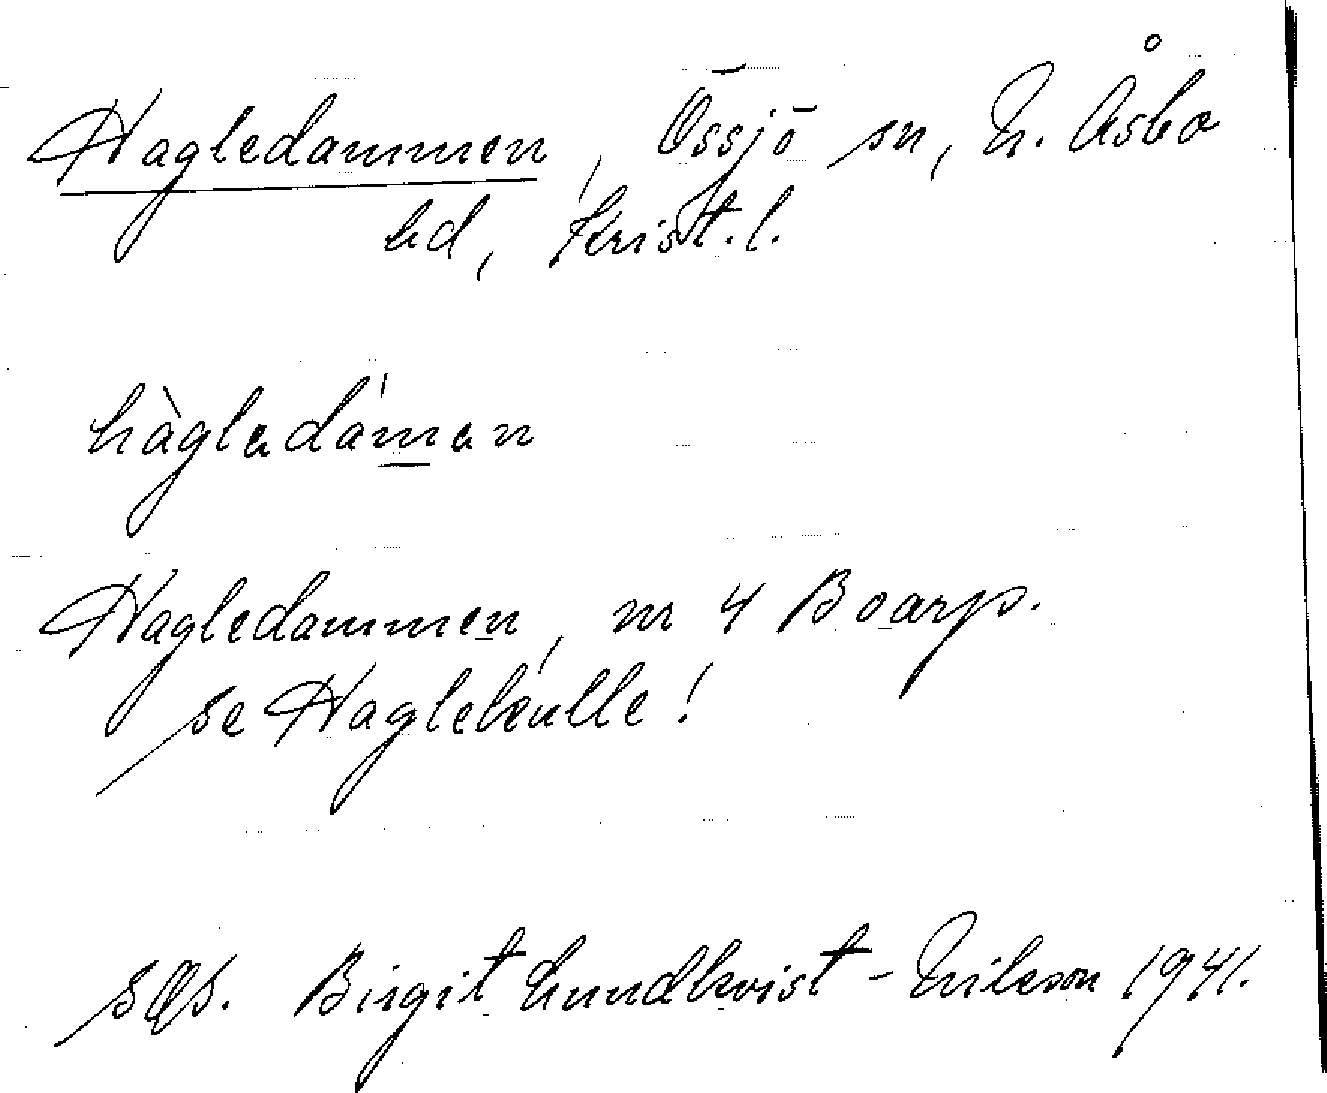 Hagledammen, Össjö sn, N. Åsbo
hd, Krist. l.
hàgladáman
Hagledammen, nr 4 Boarp.
se Haglekulle!
Birgit Lundkvist - Nilsson 1941.